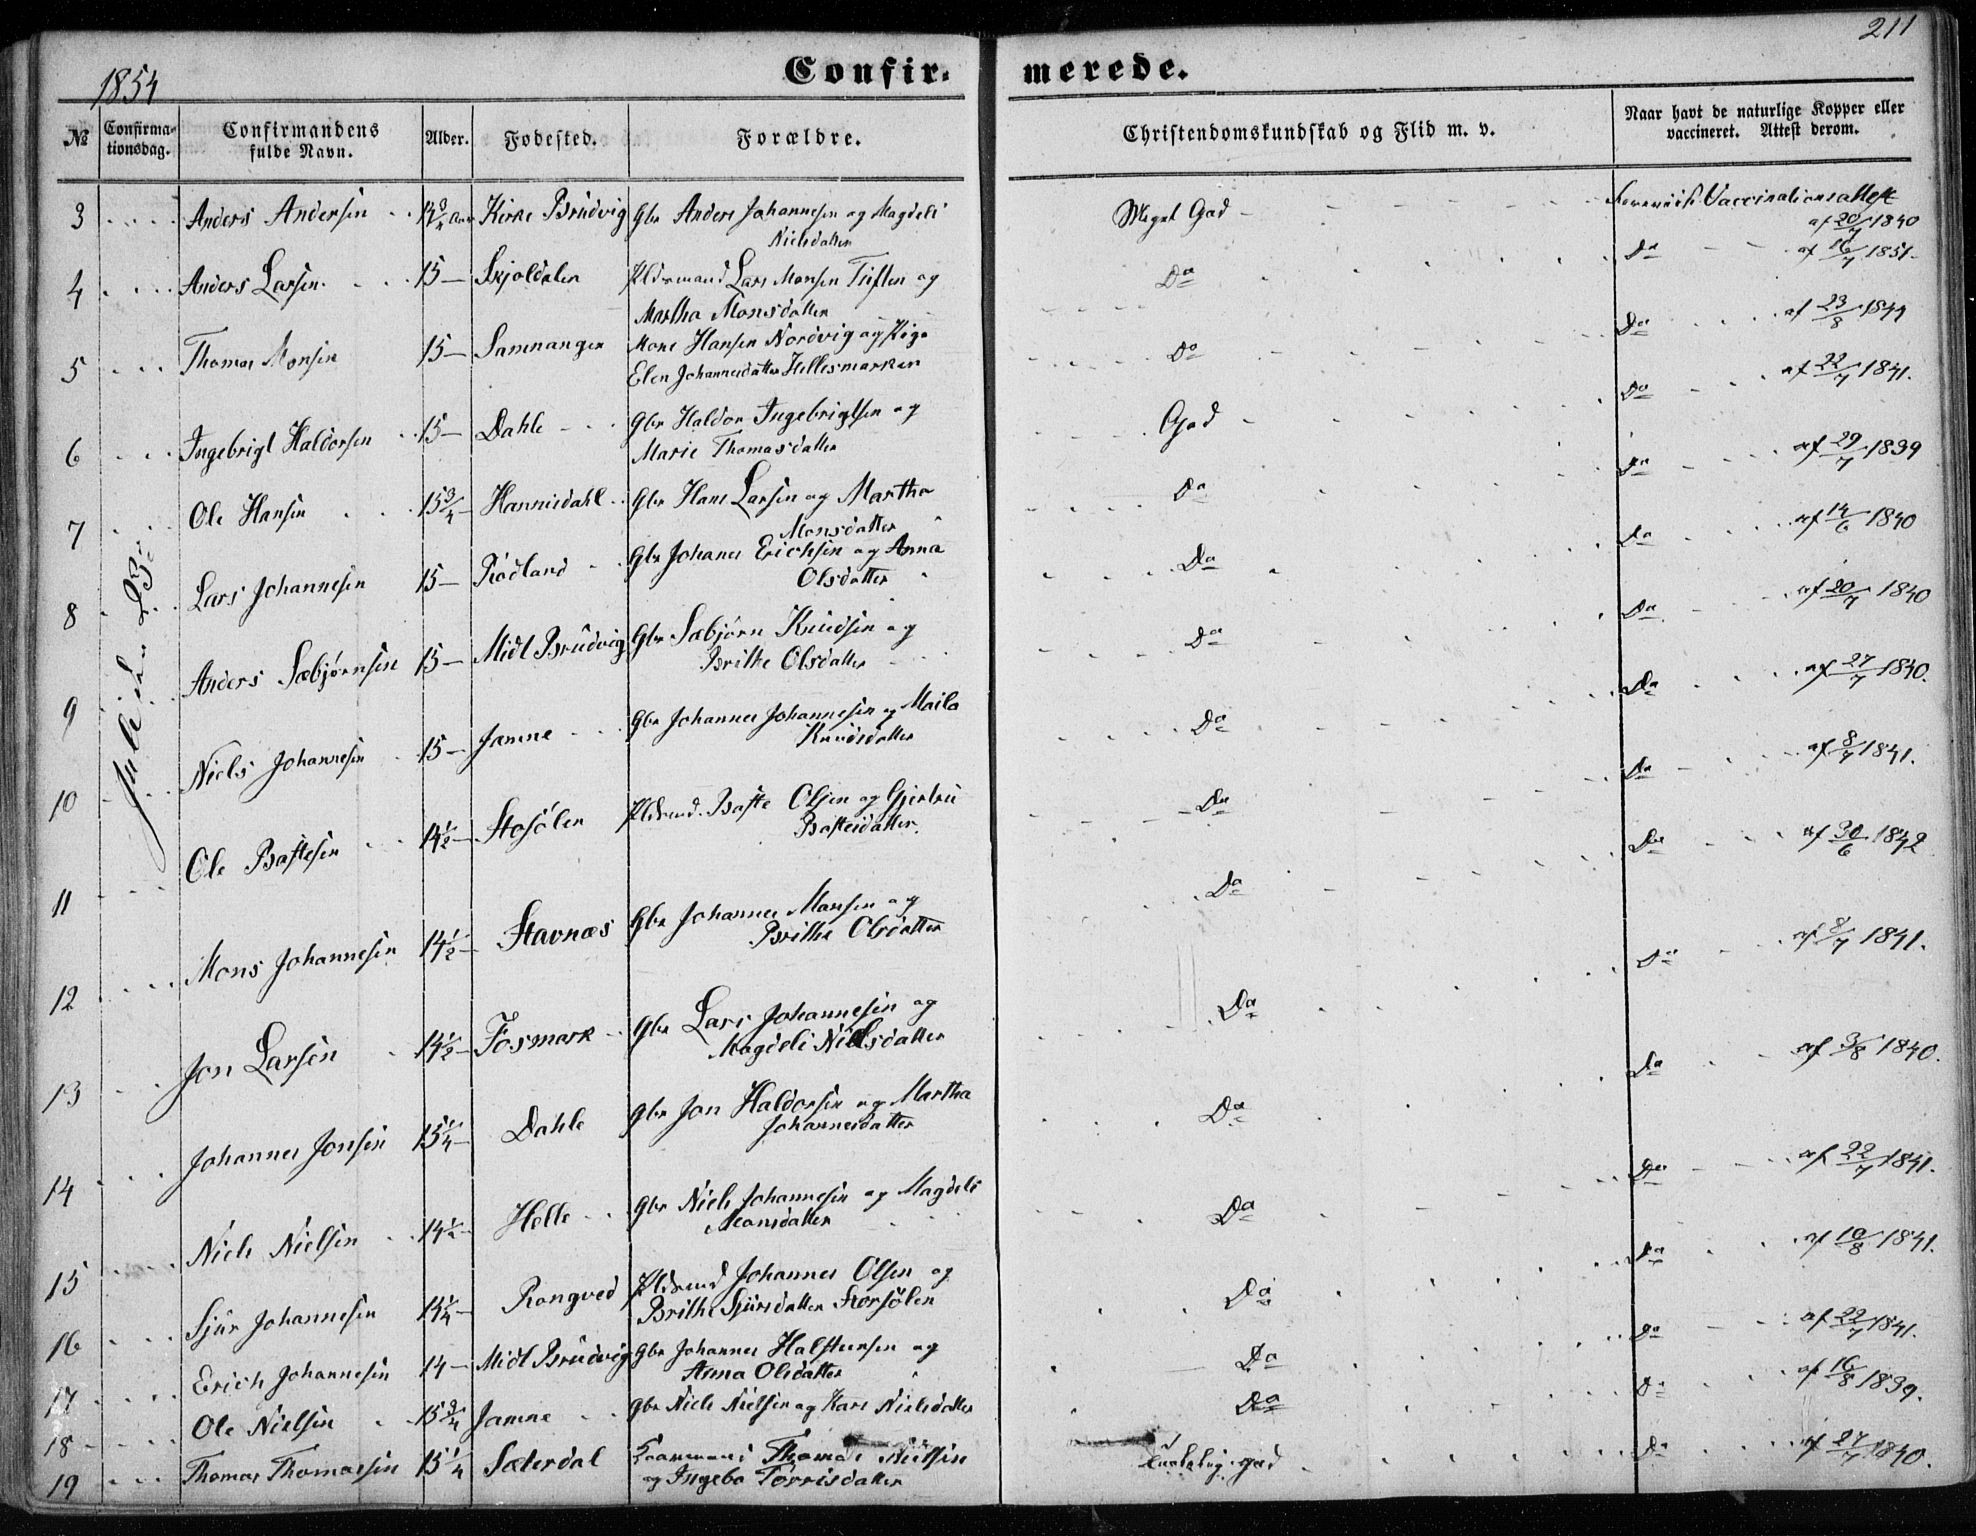 211
1854
Confirmerede.
№ Confirmationsdag. Confirmandens fulde Navn. Alder. Fødested. Forældre. Christendomskundskab og Flid m. v. Naar havt de naturlige Kopper eller vaccineret. Attest derom.
Julii d. 23
3 Anders Andersen 14 3/4 Aar Kirke Brudvig Gbr Anders Johannesen og Magdeli Meget God Vaccinationsattest
Nielsdatter af 20/7 1840
4 Anders Larsen 15 Skjoldalen Pldsmand Lars Monsen Tuften og Do Do af 16/7 1851
Martha Monsdatter
5 Thomas Monsen 15 Samnanger Mons Hansen Nordvig og Pige Do Do af 23/8 1844
Elen Johannesdatter Hellesmarken
6 Ingebrigt Haldorsen 15 Dahle Gbr Haldor Ingebrigtsen og God Do af 22/7 1841.
Marie Thomasdatter
7 Ole Hansen 15 3/4 Hannisdahl Gbr Hans Larsen og Martha Do Do af 29/7 1839
Monsdatter
8 Lars Johannesen 15 Rødland Gbr Johanes Erichsen og Anna Do Do af 14/6 1840
Olsdatter
9 Anders Sæbjørnsen 15 Midt Brudvig Gbr Sæbjørn Knudsen og Do Do af 20/7 1840
Brithe Olsdatter
10 Niels Johannesen 15 Jamne Gbr Johannes Johannesen og Maila Do Do af 27/7 1840.
Knudsdatter
11 Ole Baftesen 14 1/2 Stosølen Pldsmd. Bafte Olsen og Gjertru Do Do af 8/7 1841.
Baftesdatter.
12 Mons Johannesen 14 1/2 Stavnæs Gbr Johannes Monsen og Do Do af 30/6 1842
Brithe Olsdatter
13 Jon Larsen 14 1/2 Fosmark Gbr Lars Johannesen og Do Do af 8/7 1841.
Magdeli Nielsdatter
14 Johannes Jonsen 15 1/4 Dahle Gbr Jon Haldorsen og Martha Do Do af 3/8 1840.
Johannesdatter
15 Niels Nielsen 14 1/2 Helle Gbr Niels Johannesen og Magdeli Do Do af 22/7 1841.
Monsdatter
16 Sjur Johannesen 14 1/4 Rongved Pldsmd Johannes Olsen og Do Do af 10/8 1841.
Brithe Sjursdatter Storsølen
17 Erich Johannesen 14 Midt Brudvig Gbr Johannes Halstensen og Do Do af 22/7 1841.
Anna Olsdatter
18 Ole Nielsen 15 3/4 Jamne Gbr Niels Nielsen og Kari Nielsdatter Do Do af 16/8 1839.
19 Thomas Thomassen 15 1/4 Sæterdal Thomas Nielsen god Do af 27/7 1840.
og Ingebo Torrisdatter